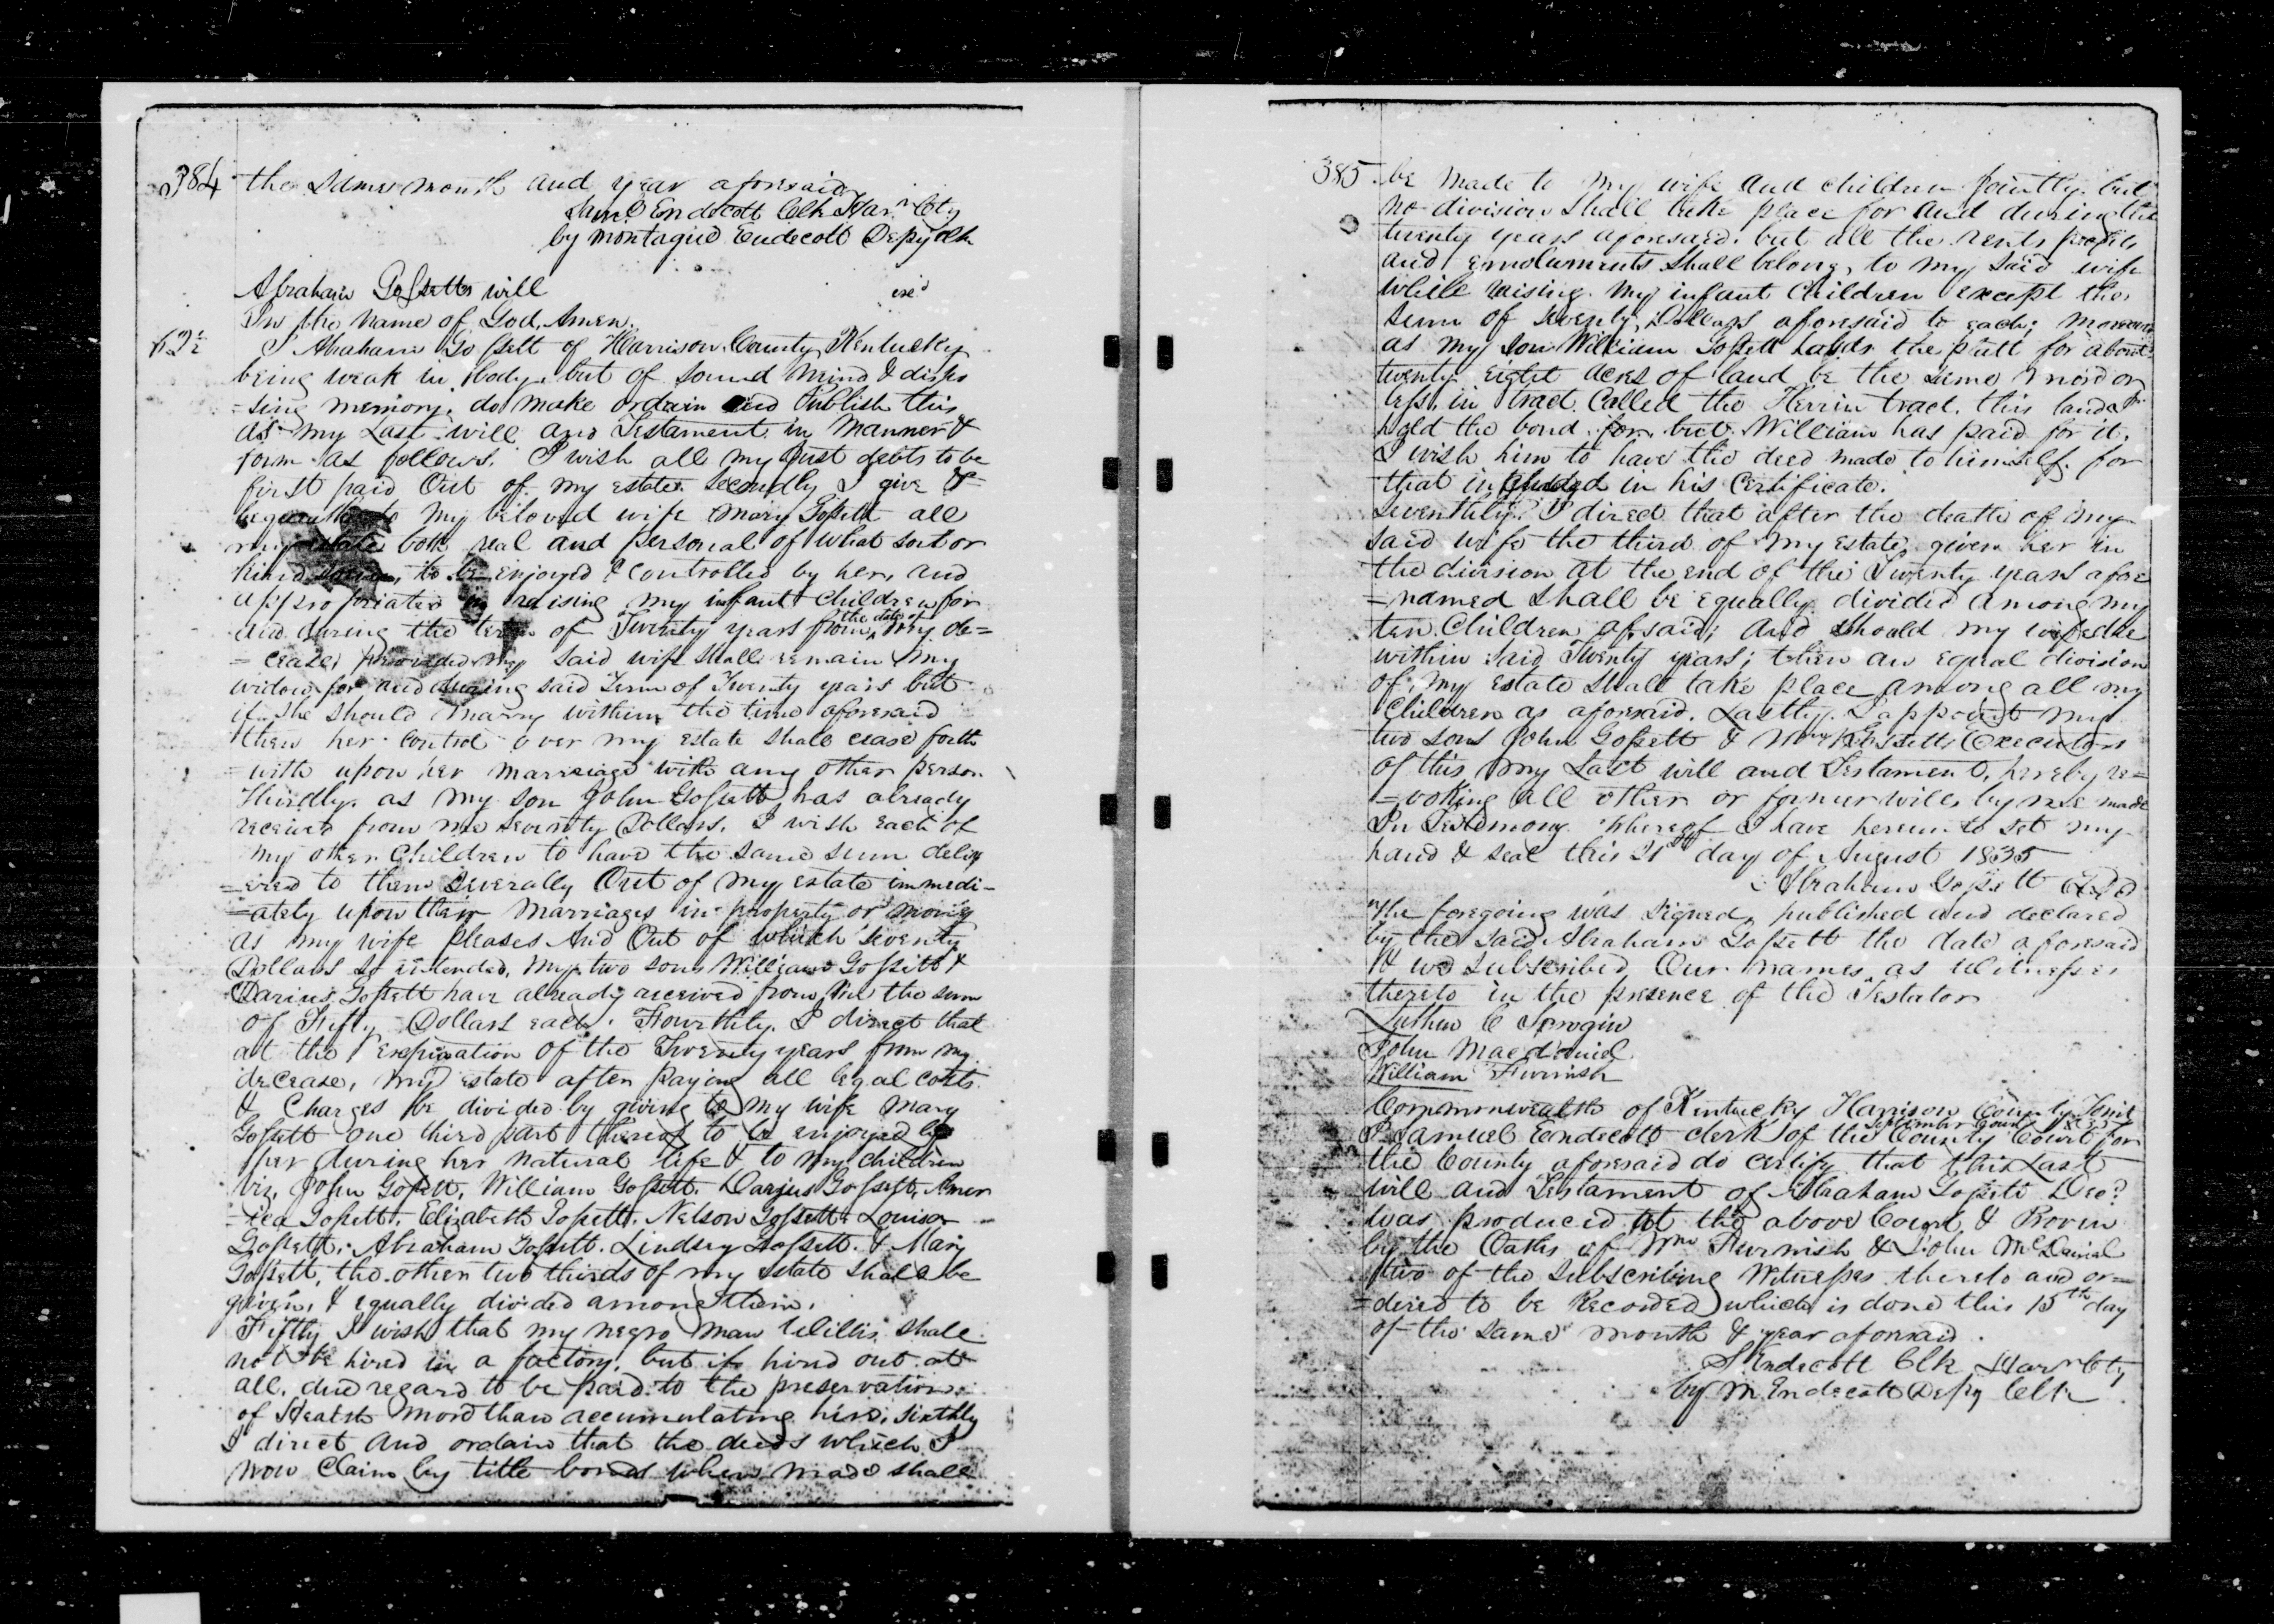 384
the same month and year aforesaid
Saml Endecott Clk Harn Cty
by Montague Endecott Depy Clk
Abraham Gossetts will
exd
In the name of God, Amen.
I Abraham Gossett of Harrison County Kentucky
being weak in body, but of sound mind & dispo
=sing memory, do make ordain and Publish this
as my Last will and Testament in manner &
form as follows. I wish all my Just debts to be
first paid Out of my estate. Secondly I give &
bequeath to my beloved wife Mary Gossett all
my estate both real and personal of what sort or
kind, to be enjoyed & controlled by her, and
appropriated in raising my infant children for
and during the term of Twenty years from the date of my de=
=cease, provided my said wife shall remain my
widow for and during said Term of Twenty years but
if she should marry within the time aforesaid
then her control over my estate shall cease forth
=with upon her marriage with any other person
Thirdly. as my son John Gossett has already
received from me seventy Dollars, I wish each of
my other Children to have the same sum deliv
=ered to them severally Out of my estate immedi-
=ately upon their marriages in property or money
as my wife pleases And Out of which seventy
Dollars so intended, my two sons William Gossett &
Darius Gossett have already received from me the sum
of Fifty Dollars each. Fourthly. I direct that
at the expiration of the Twenty years from my
decease, my estate after paying all legal costs
& Charges be divided by giving to my wife Mary
Gossett one third part thereof to be enjoyed by
her during her natural life & to my children
viz, John Gossett, William Gossett, Darius Gossett, Amer
=ica Gossett, Elizabeth Gossett, Nelson Gossett, Louisa
Gossett, Abraham Gossett, Lindsey Gossett, & Mary
Gossett, the other two thirds of my estate shall be
given, & equally divided among them.
Fiftly I wish that my negro man Willis shall
not be hired in a factory, but if hired out at
all, due regard to be paid to the preservation
of Health more than accumulating hire. Sixthly
I direct and ordain that the deeds which I
now claim by title bonds when made shall
385
be made to my wife and children jointly. but
no division shall take place for and during the
twenty years aforesaid. but all the rents profits
and emoluments shall belong to my said wife
while raising my infant children except the
sum of seventy Dollars aforesaid to each; moreover
as my son William Gossett holds the for about
twenty eight acres of land be the same more or
less, in tract called the Herrin tract, this land I
hold the bond for but William has paid for it,
I wish him to have the deed made to himself for
that included in his Certificate.
Seventhly. I direct that after the death of my
said wife the third of my estate, given her in
the division at the end of the Twenty years afore
=named shall be equally divided among my
ten Children afsaid; and should my wife die
within said Twenty years; then an equal division
of my estate shall take place among all my
Children as aforesaid. Lastly. I appoint my
two sons John Gossett & Wm Gossett Executors
of this my Last will and Testament, hereby re=
=voking all other or former wills by me made
In Testimony whereof I have hereunto set my
hand & seal this 21st day of August 1835
Abraham Gossett
The foregoing was signed, published and declared
by the said Abraham Gossett the date aforesaid
& we subscribed Our names as Witnesses
thereto in the presence of the Testator
John Macdaniel
William Furnish
Commonwealth of Kentucky Harrison County Towit
September Court
I Samuel Endecott clerk of the County Court for
the County aforesaid do certify that this Last
will and Testament of Abraham Gossett Decd
was produced at the above Court & Proven
by the Oaths of Wm Furnish & John McDaniel
two of the subscribing Witnesses thereto and or=
=dered to be Recorded which is done this 15th day
of the same month & year aforesaid.
S Endecott Clk Harn Cty
by M. Endecott Depy Clk